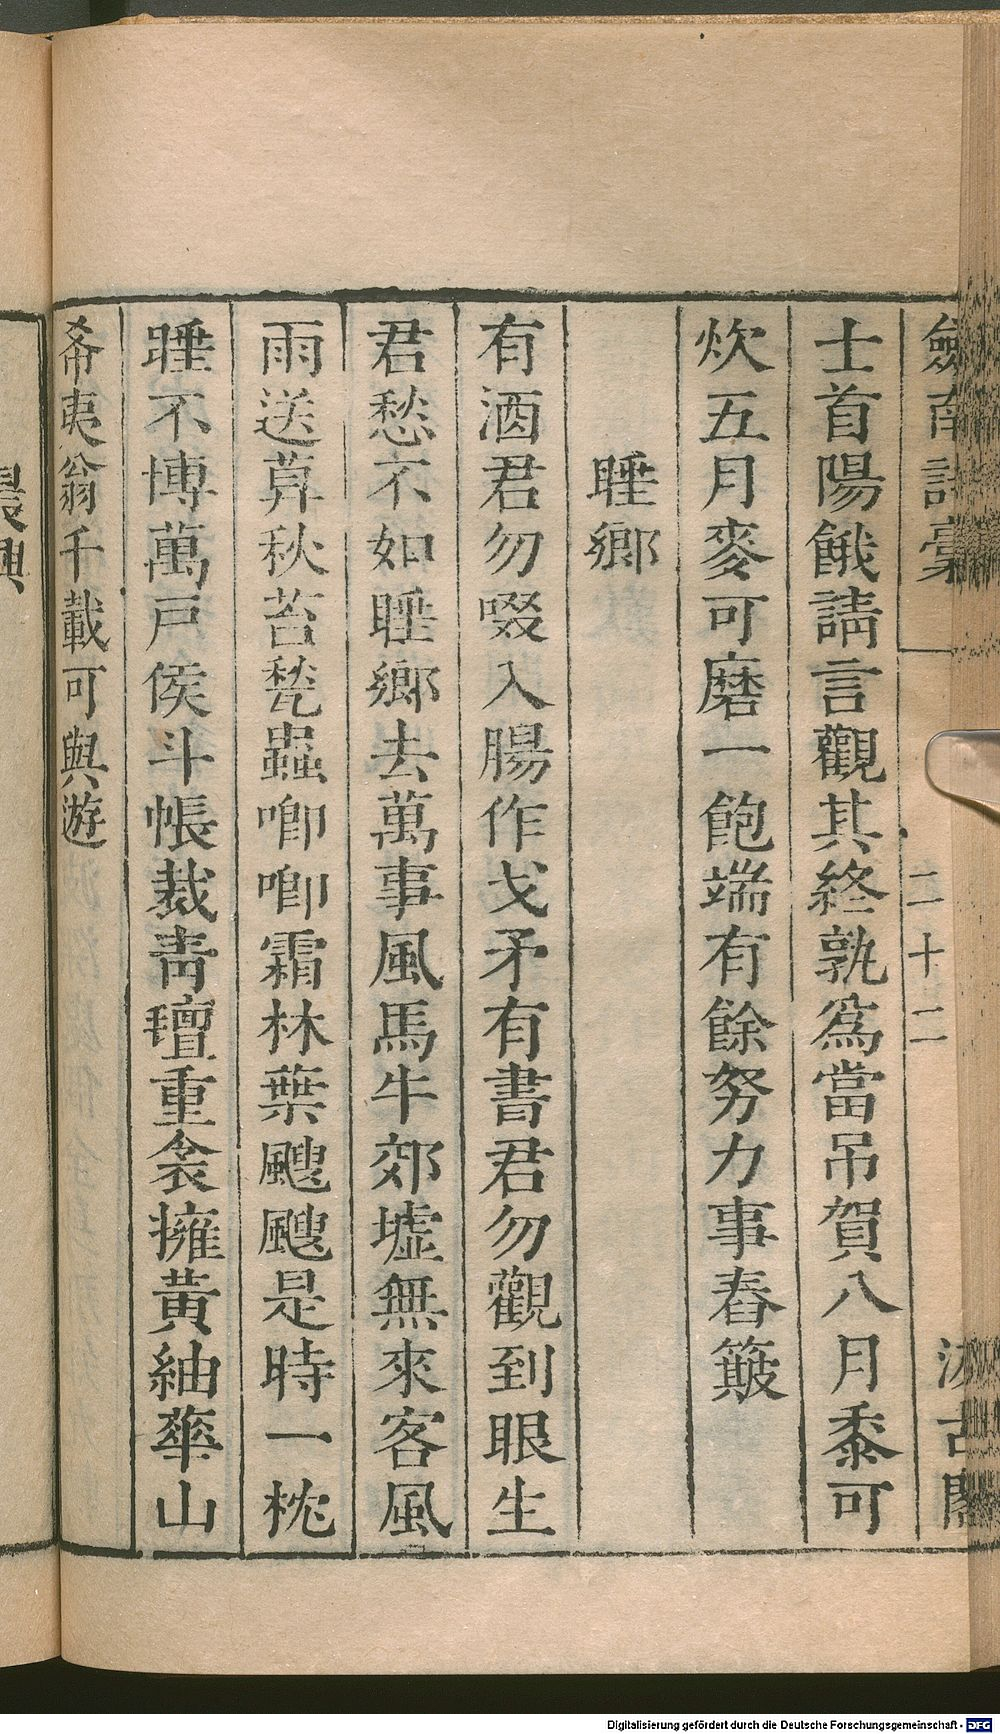 劒南詩稾
二十二
汲古閣
士首陽餓請言觀其終孰爲當吊賀八月黍可
炊五月麥可磨一飽端有餘努力事舂簸
睡鄉
有酒君勿啜入腸作戈矛有書君勿觀到眼生
君愁不如睡鄉去萬事風馬牛郊墟無來客風
雨送莫秋苔甃蟲喞喞霜林葉颼颼是時一枕
睡不博萬戸侯斗帳裁靑氊重衾擁黃紬華山
希夷翁千載可與遊
晨興
Digitalisierung gefördert durch die Deutsche Forschungsgemeinschaft - DFG